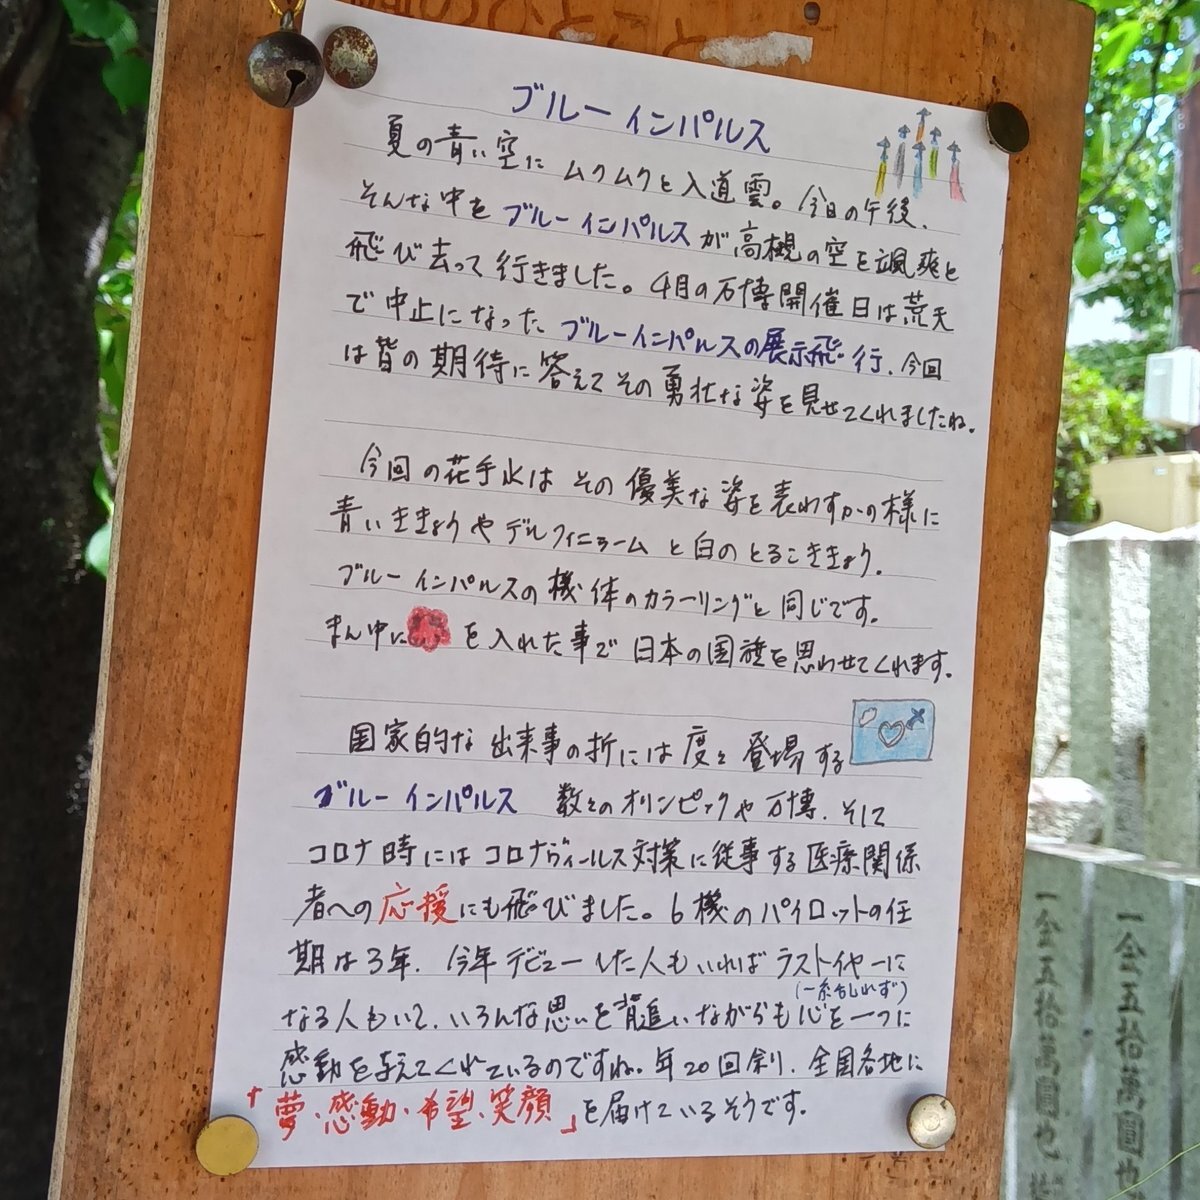 ブルーインパルス
夏の青い空にムクムクと入道雲。今日の午後、
そんな中をブルーインパルスが高槻の空を颯爽と
飛び去って行きました。4月の万博開催日は荒天
で中止になったブルーインパルスの展示飛行、今回
は皆の期待に答えてその勇壮な姿を見せてくれましたね。
今回の花手水はその優美な姿を表わすかの様に
青いききょうやデルフィニュームと白のとるこききょう。
ブルーインパルスの機体のカラーリングと同じです。
まん中にを入れた事で日本の国旗を思わせてくれます。
国家的な出来事の折には度々登場する
ブルーインパルス 数々のオリンピックや万博、そして
コロナ時にはコロナヴィールス対策に従事する医療関係
者への応援にも飛びました。6機のパイロットの任
期は3年、今年デビューした人もいればラストイヤーに
(一糸もしれず)
なる人もいて、いろんな思いを背追いながらも心を一つに
感動を与えてくれているのですね。年20回余り、全国各地に
「夢、感動、希望、笑顔」を届けているそうです。
一金五拾萬圓也
一金五拾萬圓也